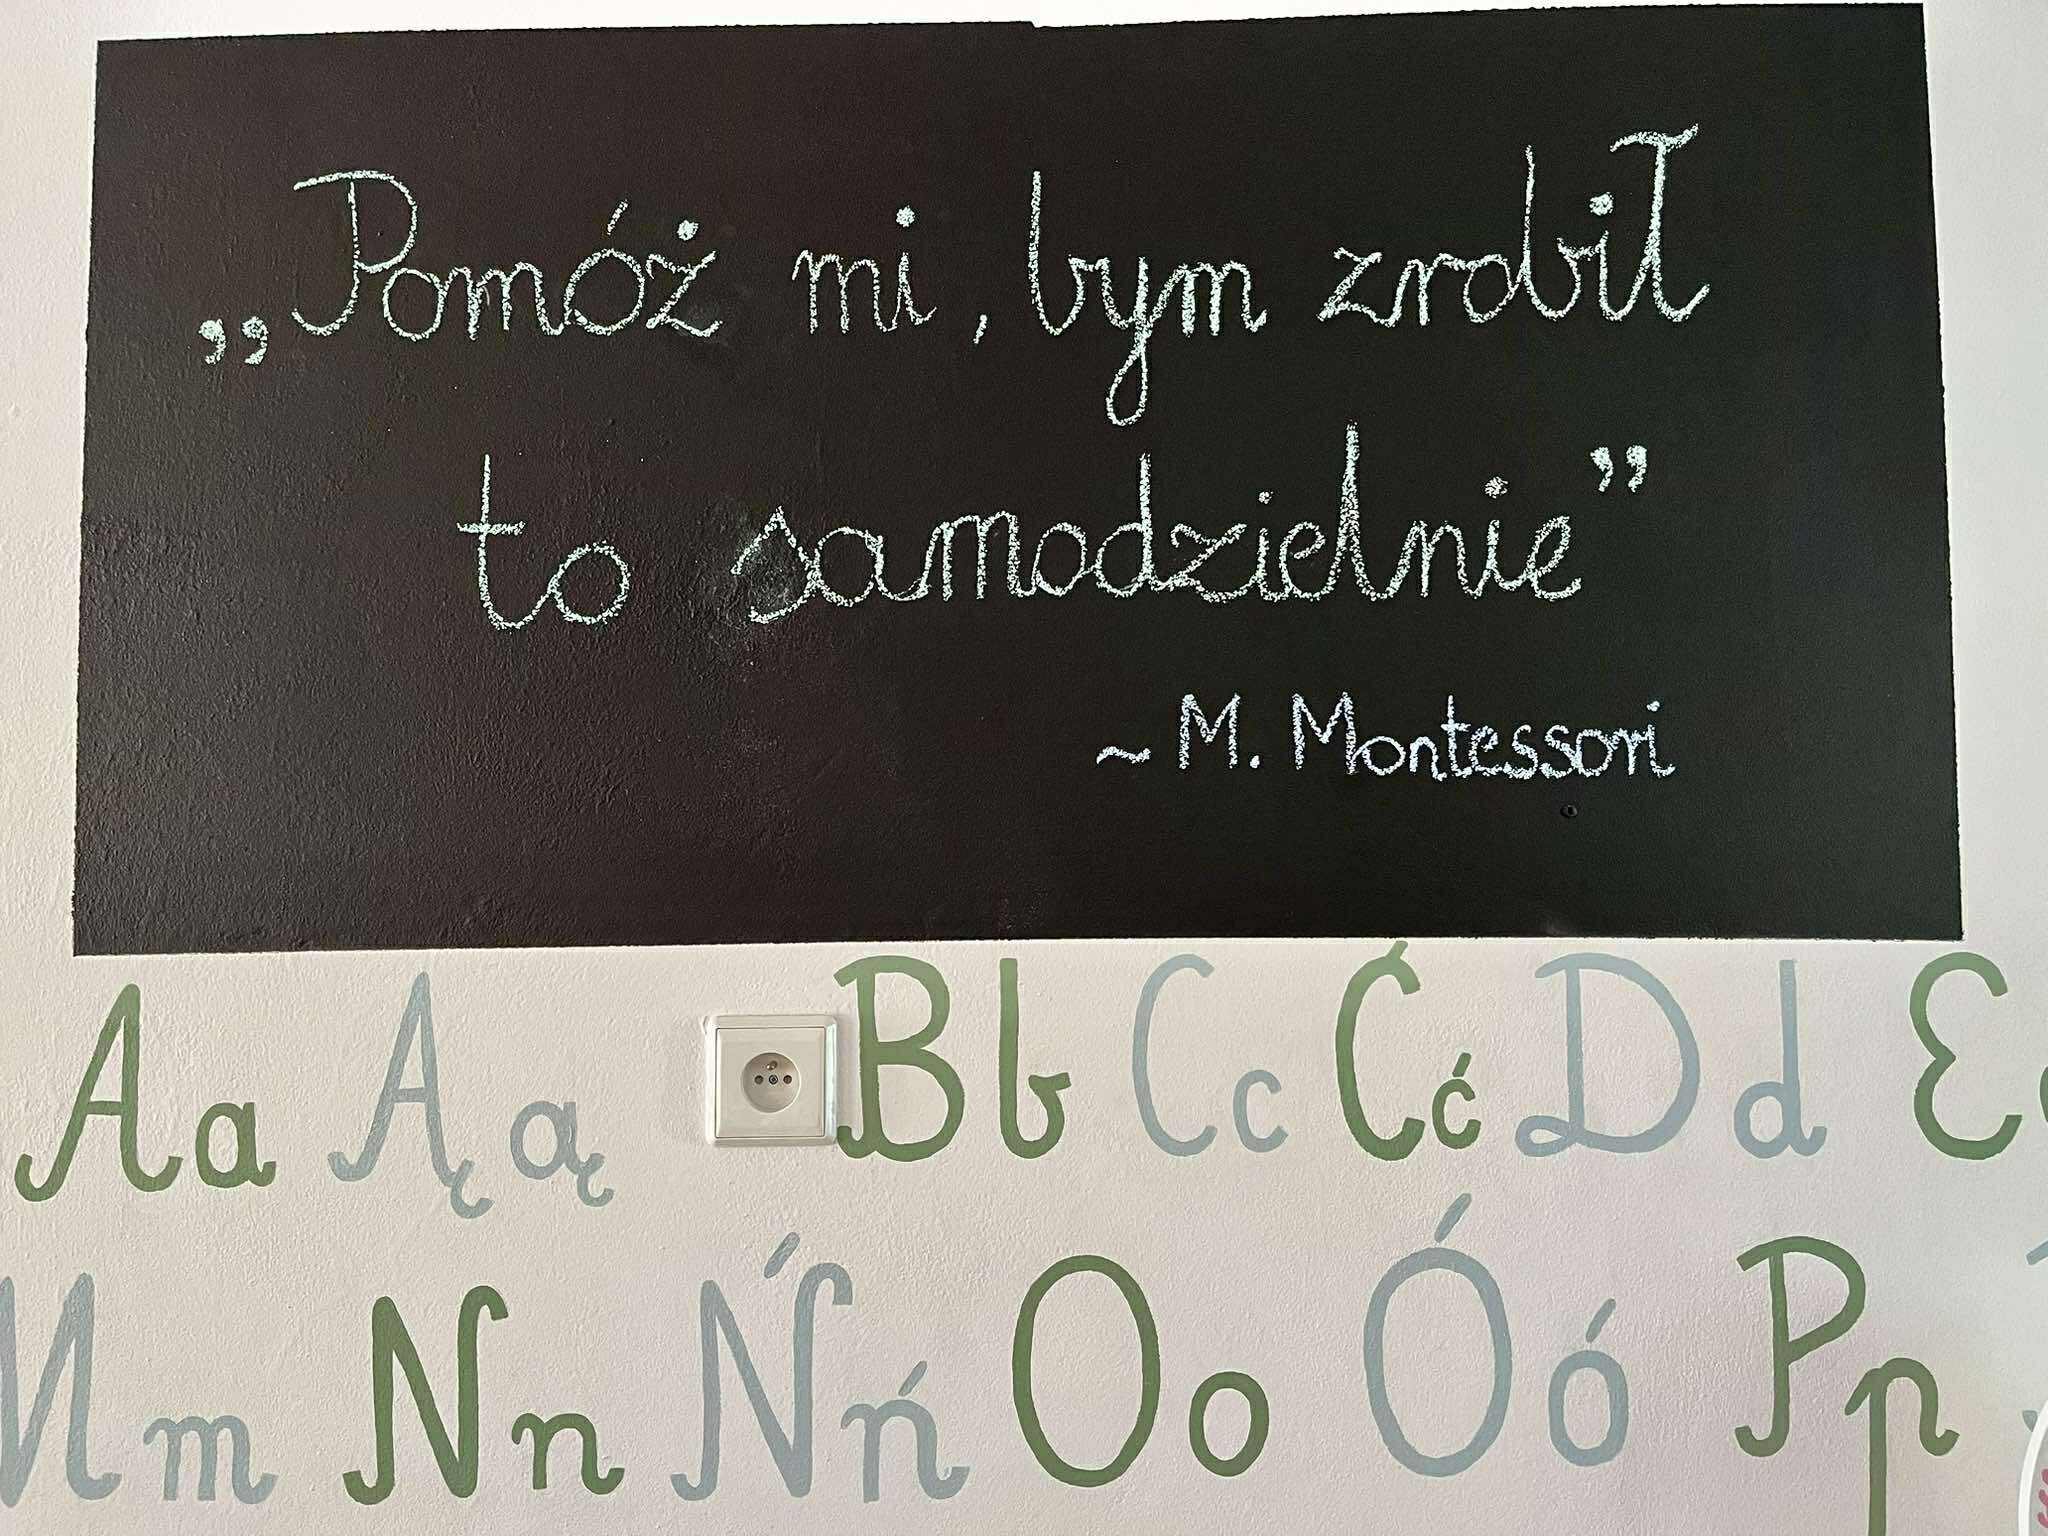 „Pomóż mi, bym zrobił
to samodzielnie”
~ M. Montessori
Aa Ąą Bb Cc Ćć Dd E
Mm Nn Ńń Oo Óó Pp